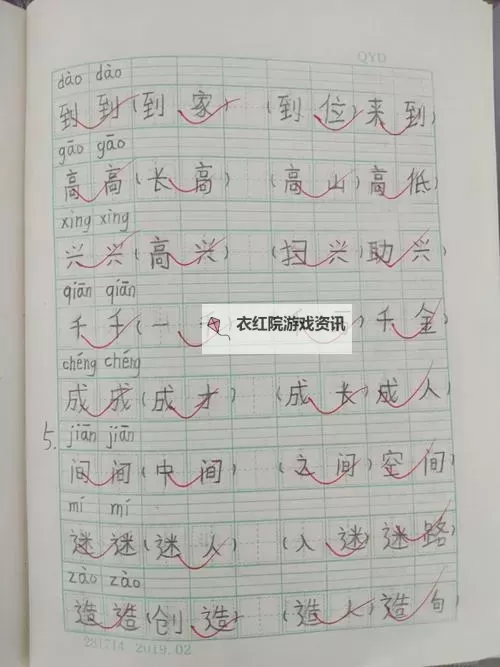 QYD
dào dào
到到(到家)(到位)来到)
gāo gāo
高高(长高)(高山)高低)
xìng xìng
兴兴(高兴)(扫兴)助兴)
qiān qiān
千千(一
衣红院游戏资讯
千金)
chéng chéng
成成(成才)(成长)成人)
5. jiān jiān
间间(中间)(之间)空间)
mí mí
迷迷(迷人)(入迷)迷路)
zào zào
造造(创造)(造人)造句)
281714 2019.02